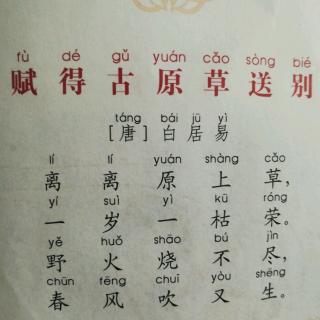 fù dé gǔ yuán cǎo sòng bié
赋得古原草送别
táng bái jū yì
[唐]白居易
lí lí yuán shàng cǎo
离离原上草，
yí suì yì kū róng
一岁一枯荣。
yě huǒ shāo bú jìn
野火烧不尽，
chūn fēng chuī yòu shēng
春风吹又生。